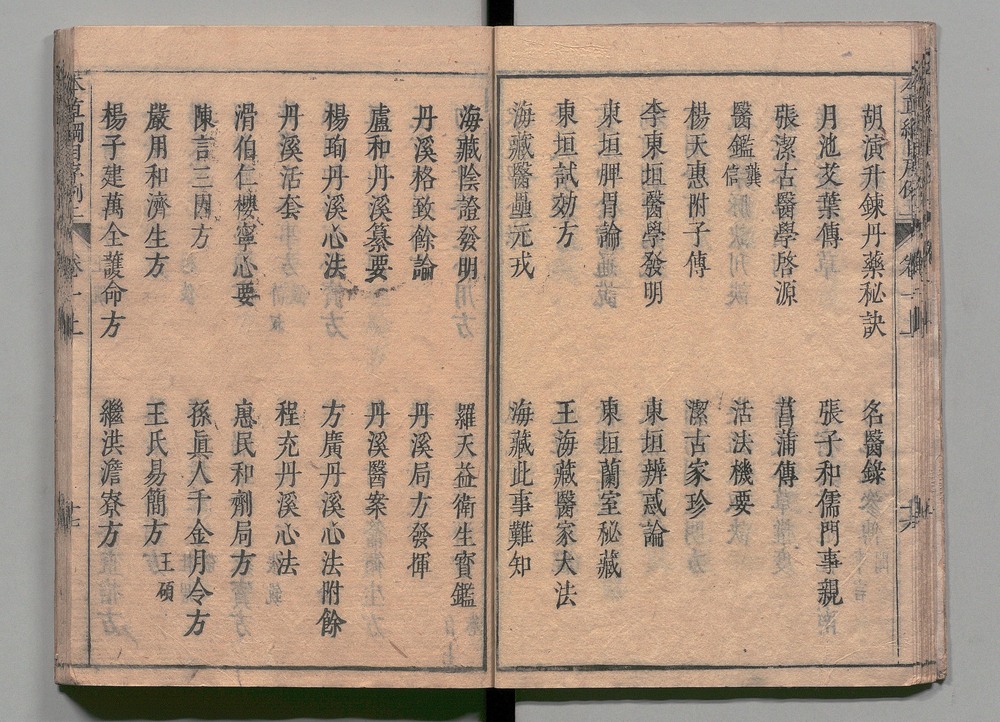 胡演升鍊丹藥秘訣
名醫錄
月池艾葉傳
張子和儒門事親
張潔古醫學啓源
菖蒲傳
醫鑑龔信
活法機要
楊天惠附子傳
潔古家珍
李東垣醫學發明
東垣辨惑論
東垣脾胃論
東垣蘭室秘藏
東垣試効方
王海藏醫家大法
海藏醫壘元戎
海藏此事難知
海藏陰證發明
羅天益衛生寳鑑
丹溪格致餘論
丹溪局方發揮
盧和丹溪纂要
丹溪醫案
楊珣丹溪心法
方廣丹溪心法附餘
丹溪活套
程充丹溪心法
滑伯仁櫻寧心要
惠民和劑局方
陳言三因方
孫眞人千金月令方
嚴用和濟生方
王氏易簡方王碩
楊子建萬全護命方
繼洪澹寮方
本草綱目序例二
卷一上